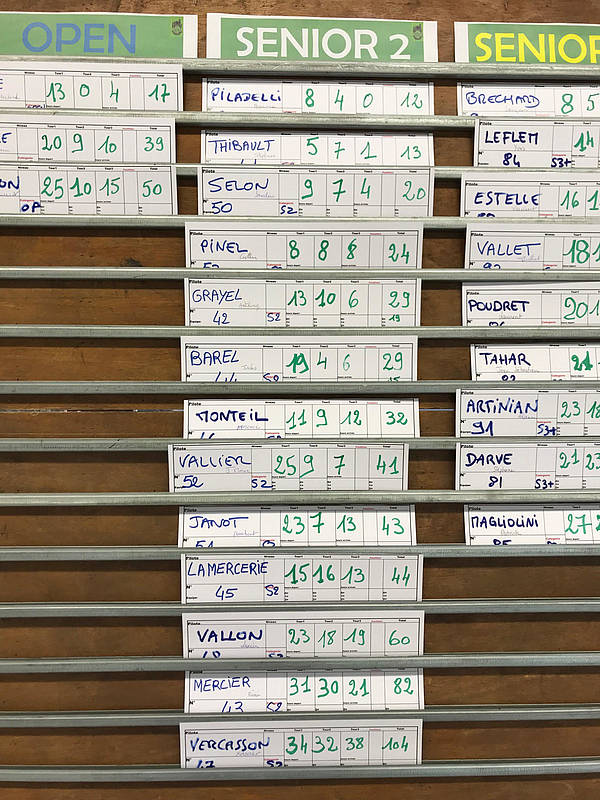 OPEN
13 0 4 17
20 9 10 39
25 10 15 50
OP
SENIOR 2
PILADELLI 8 4 0 12
THIBAULT 5 7 1 13
SELON 9 7 4 20
50 S2
PINEL 8 8 8 24
GRAYEL 13 10 6 29
42 S2 19
BAREL 19 4 6 29
MONTEIL 11 9 12 32
VALLIER 25 9 7 41
52 S2
JANOT 23 7 13 43
LAMERCERIE 15 16 13 44
45 S2
VALLON 23 18 19 60
MERCIER 31 30 21 82
43 S2
VERCASSON 34 32 38 104
47 S2
SENIOR
BRECHARD 8 5
LEFLEM 14
84 S3+
ESTELLE 16
VALLET 18
POUDRET 20
TAHAR 21
ARTINIAN 23 18
91 S3+
DARVE 21 23
81 S3+
MAGLIOLINI 27 2